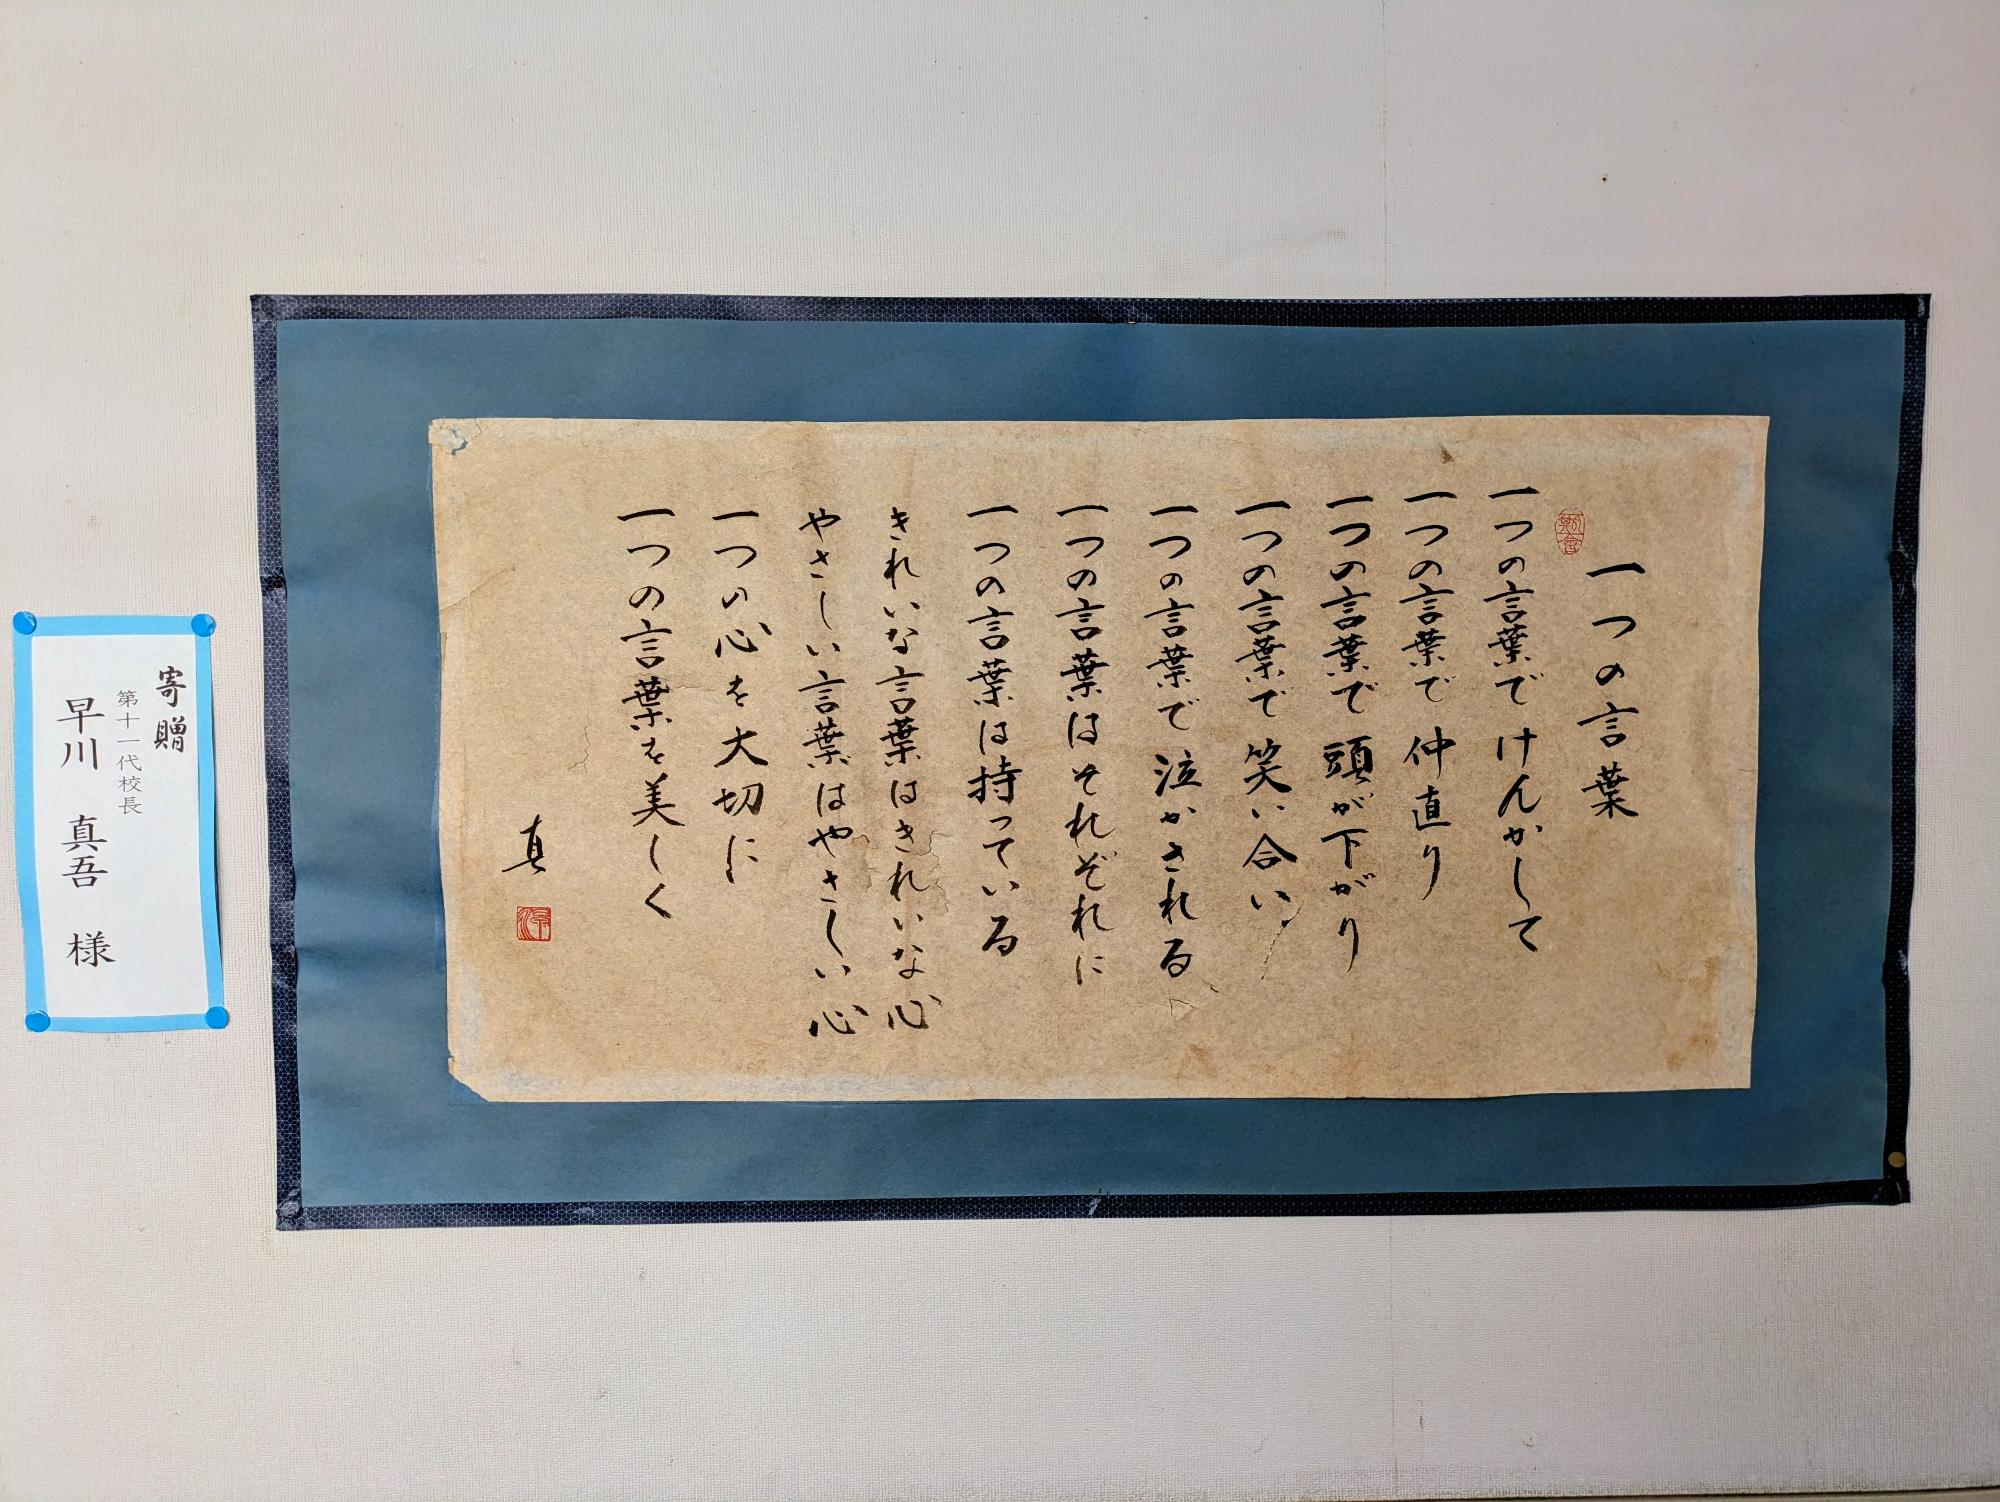 一つの言葉
一つの言葉でけんかして
一つの言葉で仲直り
一つの言葉で頭が下がり
一つの言葉で笑い合い
一つの言葉で泣かされる
一つの言葉はそれぞれに
一つの言葉は持っている
きれいな言葉はきれいな心
やさしい言葉はやさしい心
一つの心を大切に
一つの言葉を美しく
真
寄贈
第十一代校長
早川 真吾 様